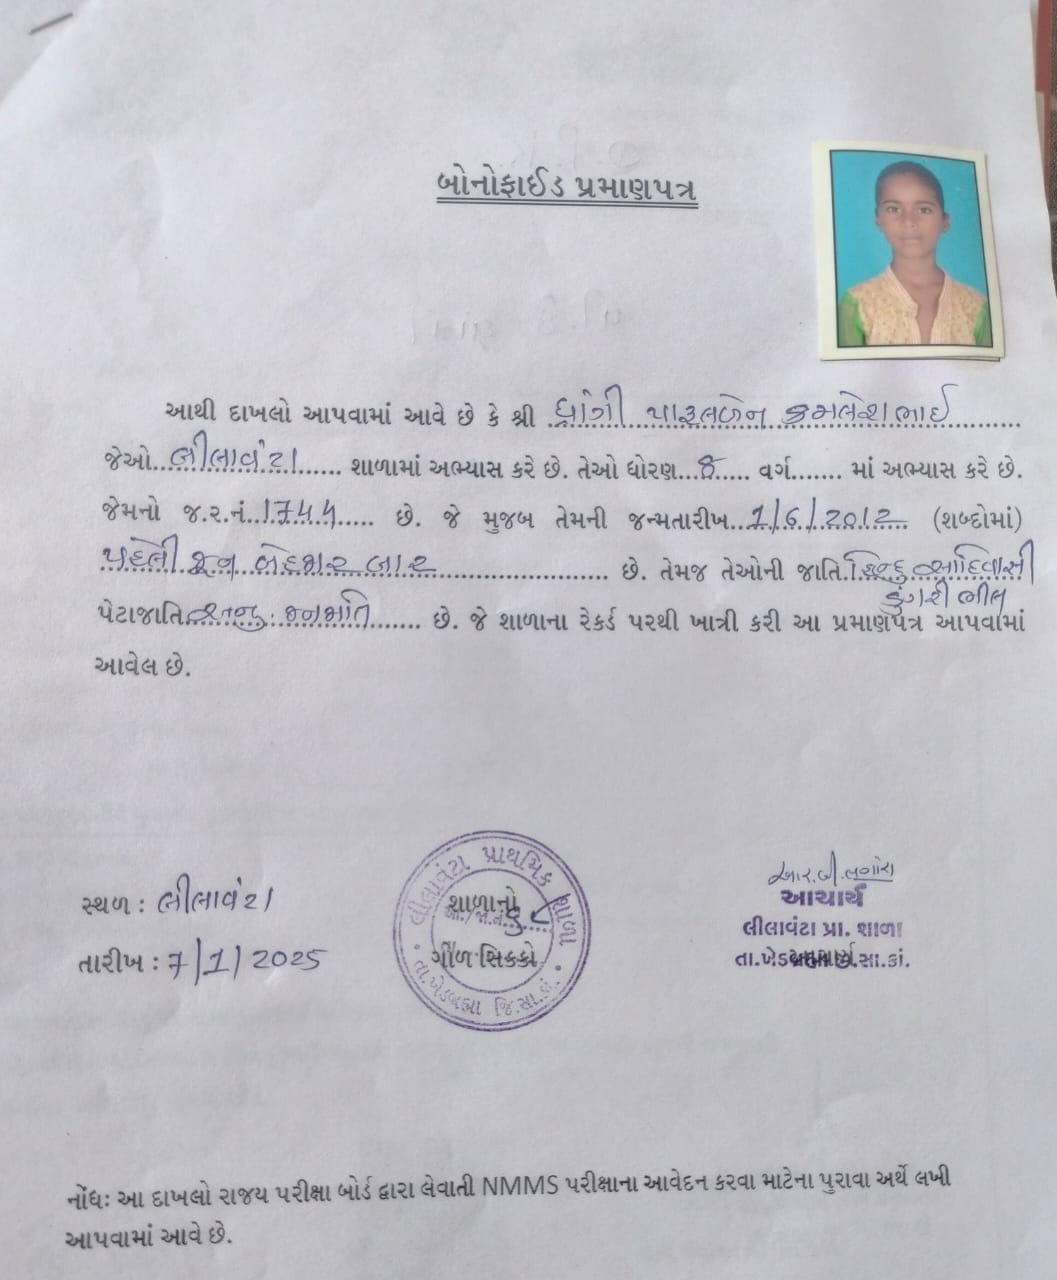 બોનોફાઈડ પ્રમાણપત્ર
આથી દાખલો આપવામાં આવે છે કે શ્રી ધ્રાંગી પારૂલબેન કમલેશભાઈ
જેઓ...લીલાવંટા...... શાળામાં અભ્યાસ કરે છે. તેઓ ધોરણ...8..... વર્ગ....... માં અભ્યાસ કરે છે.
જેમનો જ.ર.નં..1744..... છે. જે મુજબ તેમની જન્મતારીખ...1/6/2012.. (શબ્દોમાં)
પહેલી જૂન બેહજાર બાર છે. તેમજ તેઓની જાતિ.હિન્દુ આદિવાસી
ડુંગરી ભીલ
પેટાજાતિ અનુ. જનજાતિ....... છે. જે શાળાના રેકર્ડ પરથી ખાત્રી કરી આ પ્રમાણપત્ર આપવામાં
આવેલ છે.
સ્થળ : લીલાવંટા
તારીખ : 7/1/2025
લીલાવંટા પ્રાથમિક શાળા
શાળાનો
ગોળ સિક્કો
તા.ખેડબ્રહ્મા જિ.સા.કાં.
આચાર્ય
લીલાવંટા પ્રા. શાળા
નોંધઃ આ દાખલો રાજય પરીક્ષા બોર્ડ દ્વારા લેવાતી NMMS પરીક્ષાના આવેદન કરવા માટેના પુરાવા અર્થે લખી
આપવામાં આવે છે.